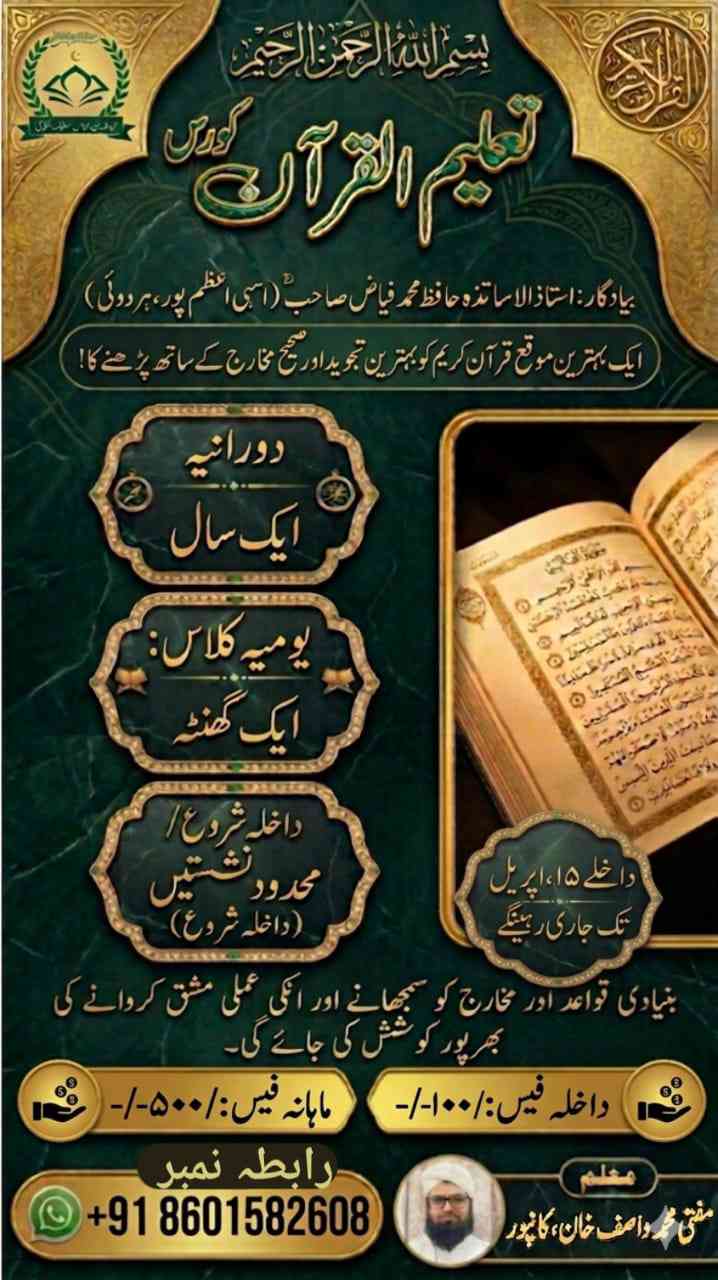 بسم اللہ الرحمن الرحیم
تعلیم القرآن کورس
بیادگار: استاذ الاساتذہ حافظ محمد فیاض صاحبؒ (اسہی اعظم پور، ہردوئی)
ایک بہترین موقع قرآن کریم کو بہترین تجوید اور صحیح مخارج کے ساتھ پڑھنے کا!
دورانیہ
ایک سال
یومیہ کلاس:
ایک گھنٹہ
داخلہ شروع/
محدود نشستیں
(داخلہ شروع)
داخلے ۱۵، اپریل
تک جاری رہینگے
بنیادی قواعد اور مخارج کو سمجھانے اور انکی عملی مشق کروانے کی
بھرپور کوشش کی جائے گی۔
داخلہ فیس: /۱۰۰-/-
ماہانہ فیس: /۵۰۰-/-
رابطہ نمبر
+91 8601582608
معلم
مفتی محمد واصف خان، کانپور